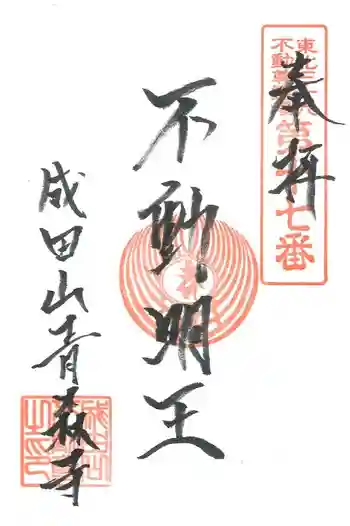 奉拝
東北三十六
不動尊霊場
第十七番
不動明王
成田山青森寺